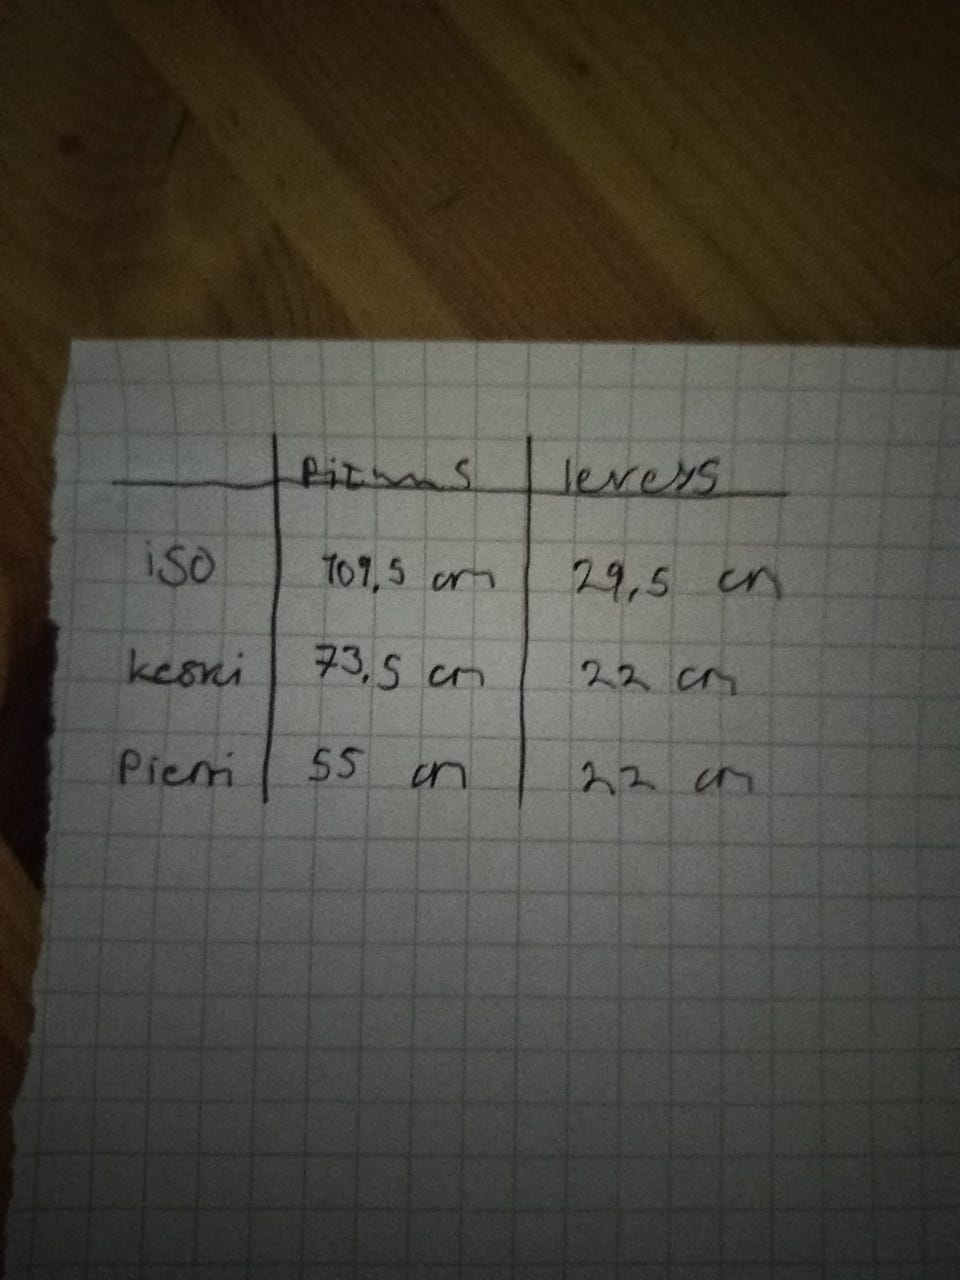 pituus leveys
iso 109,5 cm 29,5 cm
keski 73,5 cm 22 cm
Pieni 55 cm 22 cm